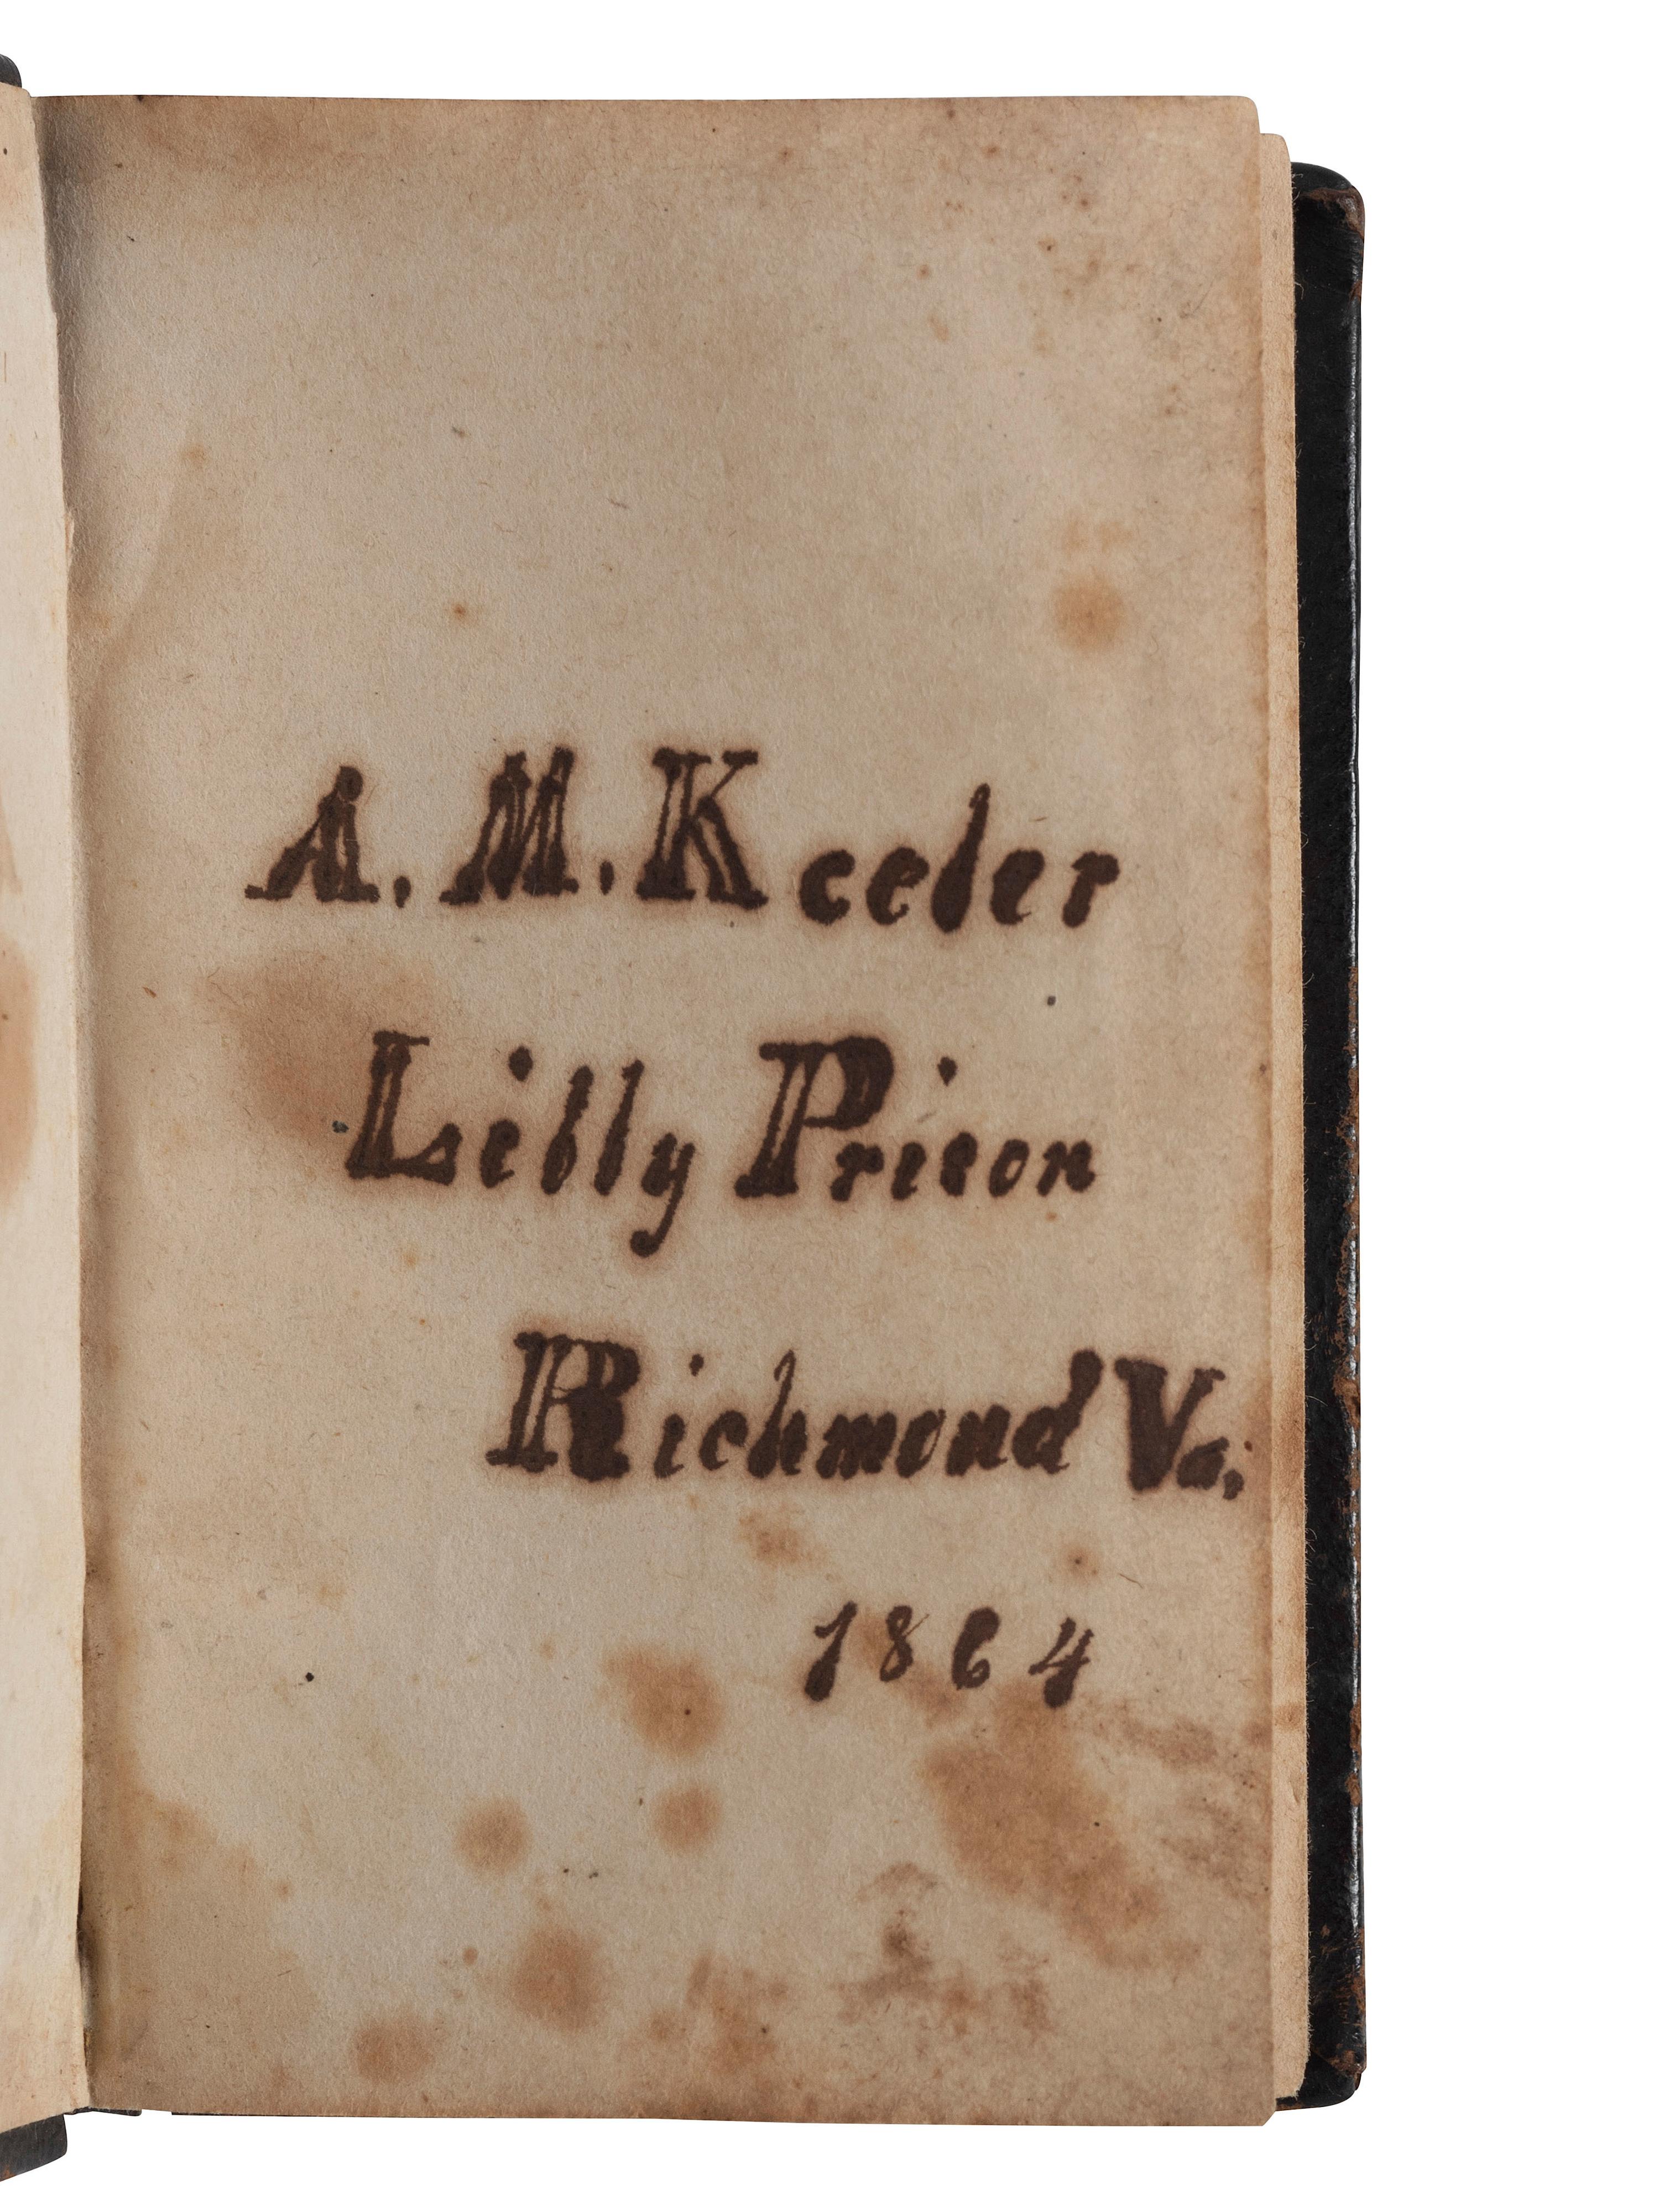 A. M. Keeler
Libby Prison
Richmond Va.
1864